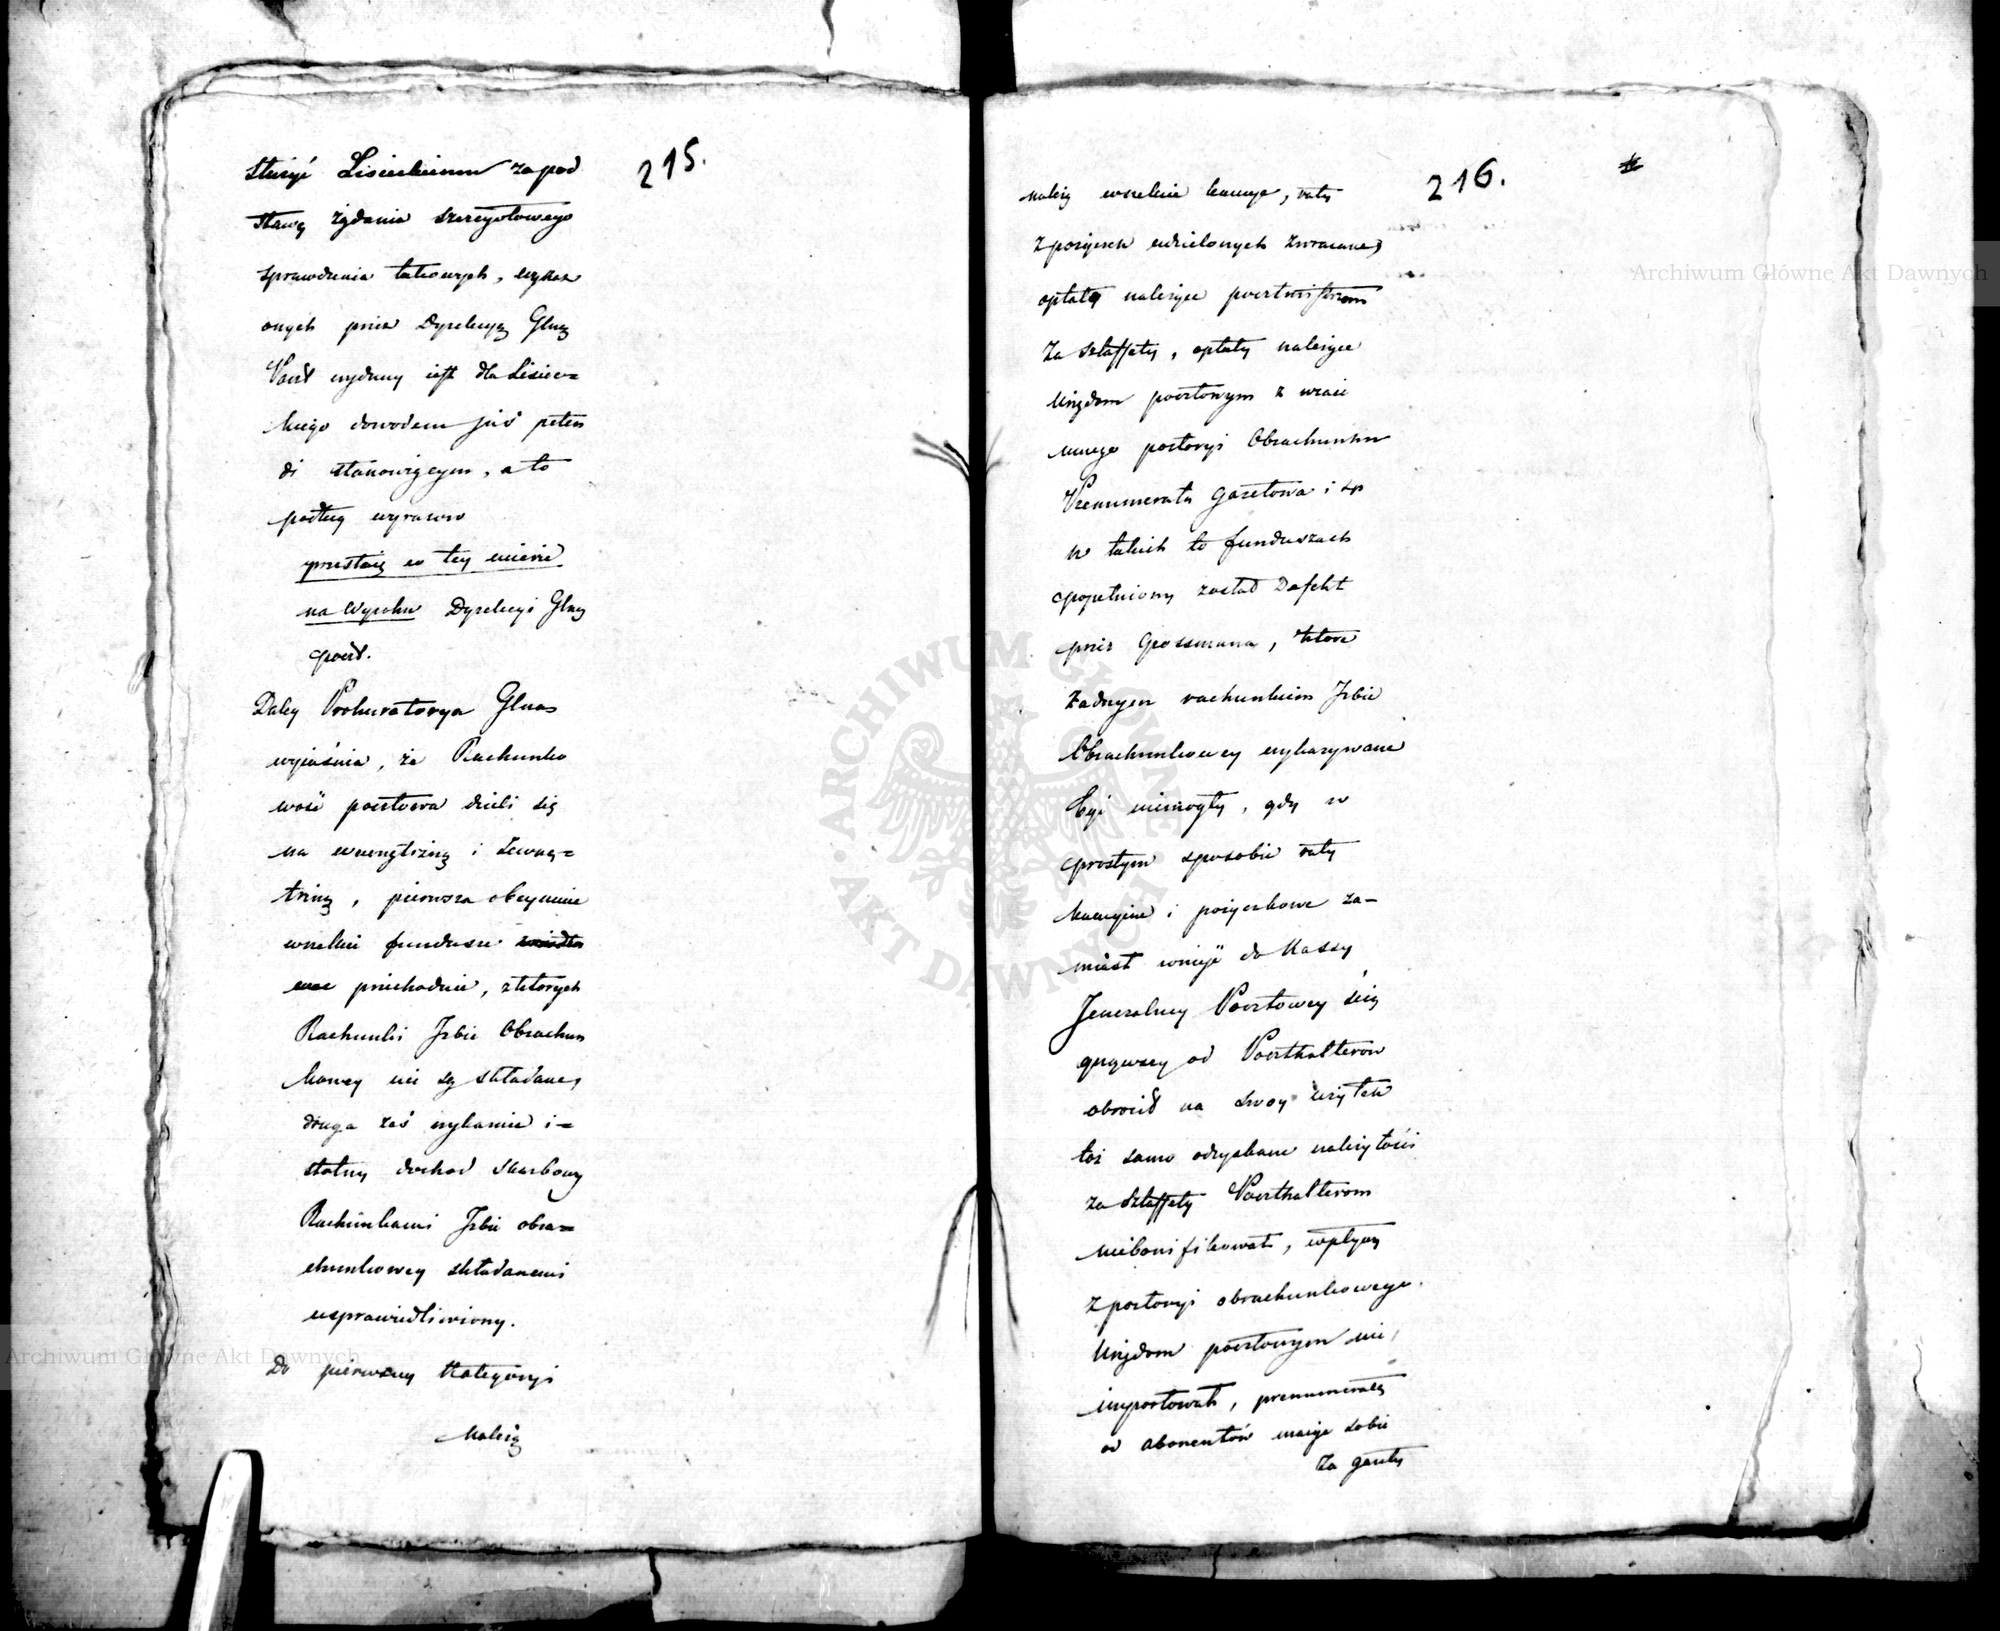 215.
służyć Lisieckiemu za pod
stawę żądania szczegółowego
sprawdzenia takowych, wykaz
onych przez Dyrekcyą Glną
Poczt wydany iest dla Lisiec=
kiego dowodem jus peten
di stanowiącym, a to
podług wyrazów
przestaię w tey mierze
na Wyroku Dyrekcyi Glney
poczt.
Daley Prokuratorya Glna
wyiaśnia, że Rachunko
wość pocztowa dzieli się
na wewnętrzną i zewnę=
trzną, pierwsza obeymuie
wszelkie fundusze
przechodnie, z których
Rachunki Izbie Obrachun
kowey nie są składane,
druga zaś wykazuie i=
stotny dochod skarbowy
Rachunkami Izbie obra=
chunkowey składanemi
usprawiedliwiony.
Do pierwszey Kategoryi
należą
216.
należą wszelkie kaucye, raty
z pożyczek udzielonych zwracane,
opłaty należące pocztmistrzom
za sztaffety, opłaty należące
Urzędom pocztowym z wzaie
mnego portoryi Obrachunku
Prenumerata Gazetowa i
w takich to funduszach
popełniony został Defekt
przez Grossmana, które
żadnym rachunkiem Izbie
Obrachunkowey wykazywane
być niemogły, gdy w
prostym sposobie raty
kaucyine i pożyczkowe za-
miast wnieść do Kassy
Jeneralney Pocztowey ścią
gnąwszy od Poczthalterów
obrócił na swoy użytek
toż samo odzyskane należytości
za sztaffety Poczthalterom
niebonifikował, wpływy
z portoryi obrachunkowego
Urzędom pocztowym nie
importował, prenumeratę
od abonentów maiąc sobie
za gazety